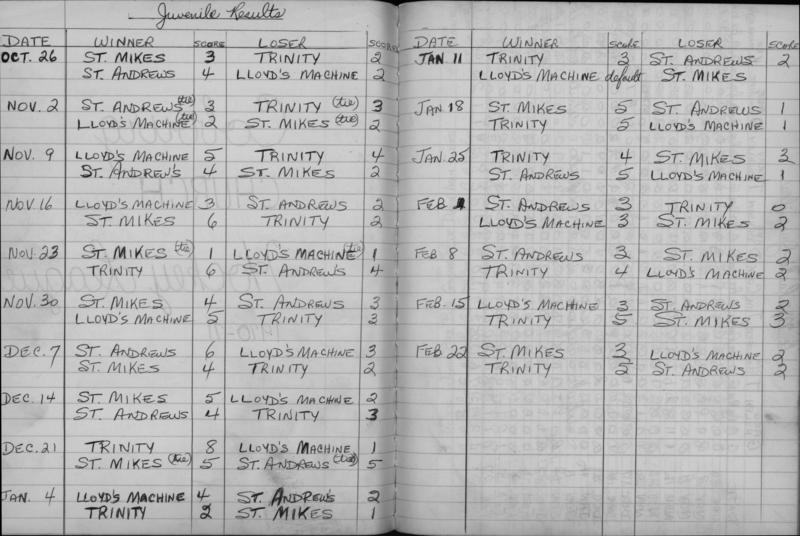 Juvenile Results
DATE WINNER SCORE LOSER SCORE
OCT. 26 ST. MIKES 3 TRINITY 2
ST. ANDREWS 4 LLOYD'S MACHINE 2
NOV. 2 ST. ANDREWS (tie) 3 TRINITY (tie) 3
LLOYD'S MACHINE (tie) 2 ST. MIKES (tie) 2
NOV. 9 LLOYD'S MACHINE 5 TRINITY 4
ST. ANDREWS 4 ST. MIKES 2
NOV. 16 LLOYD'S MACHINE 3 ST. ANDREWS 2
ST. MIKES 6 TRINITY 2
NOV. 23 ST. MIKES (tie) 1 LLOYD'S MACHINE (tie) 1
TRINITY 6 ST. ANDREWS 4
NOV. 30 ST. MIKES 4 ST. ANDREWS 3
LLOYD'S MACHINE 5 TRINITY 3
DEC. 7 ST. ANDREWS 6 LLOYD'S MACHINE 3
ST. MIKES 4 TRINITY 2
DEC. 14 ST. MIKES 5 LLOYD'S MACHINE 2
ST. ANDREWS 4 TRINITY 3
DEC. 21 TRINITY 8 LLOYD'S MACHINE 1
ST. MIKES (tie) 5 ST. ANDREWS (tie) 5
JAN. 4 LLOYD'S MACHINE 4 ST. ANDREWS 2
TRINITY 2 ST. MIKES 1
DATE WINNER SCORE LOSER SCORE
JAN 11 TRINITY 3 ST. ANDREWS 2
LLOYD'S MACHINE default ST. MIKES
JAN 18 ST. MIKES 5 ST. ANDREWS 1
TRINITY 5 LLOYD'S MACHINE 1
JAN. 25 TRINITY 4 ST. MIKES 3
ST. ANDREWS 5 LLOYD'S MACHINE 1
FEB 1 ST. ANDREWS 3 TRINITY 0
LLOYD'S MACHINE 3 ST. MIKES 2
FEB 8 ST. ANDREWS 3 ST. MIKES 2
TRINITY 4 LLOYD'S MACHINE 2
FEB. 15 LLOYD'S MACHINE 3 ST. ANDREWS 2
TRINITY 5 ST. MIKES 3
FEB 22 ST. MIKES 3 LLOYD'S MACHINE 2
TRINITY ST. ANDREWS 2